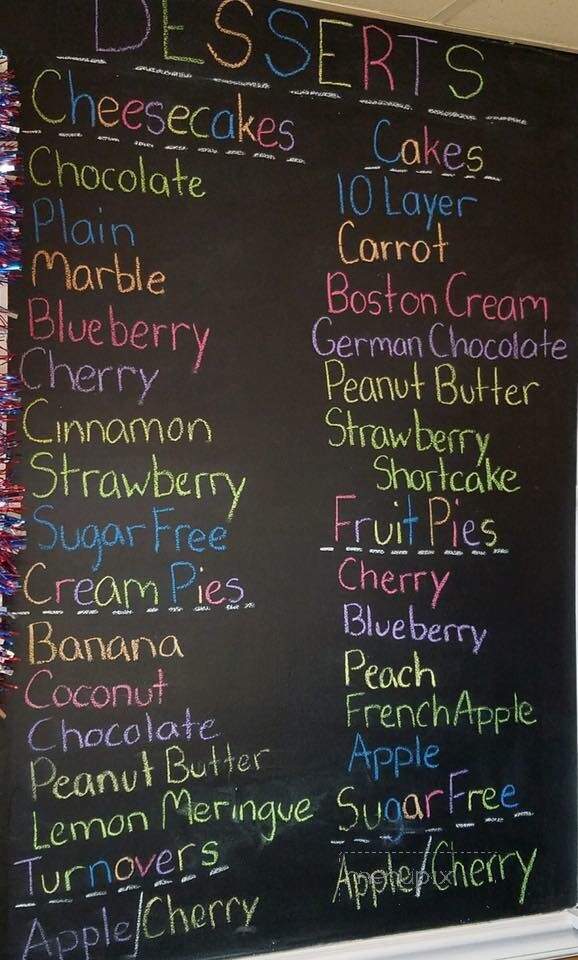 DESSERTS
Cheesecakes
Chocolate
Plain
Marble
Blueberry
Cherry
Cinnamon
Strawberry
Sugar Free
Cream Pies
Banana
Coconut
Chocolate
Peanut Butter
Lemon Meringue
Turnovers
Apple/Cherry
Cakes
10 Layer
Carrot
Boston Cream
German Chocolate
Peanut Butter
Strawberry
Shortcake
Fruit Pies
Cherry
Blueberry
Peach
French Apple
Apple
Sugar Free
Apple/Cherry
menupix